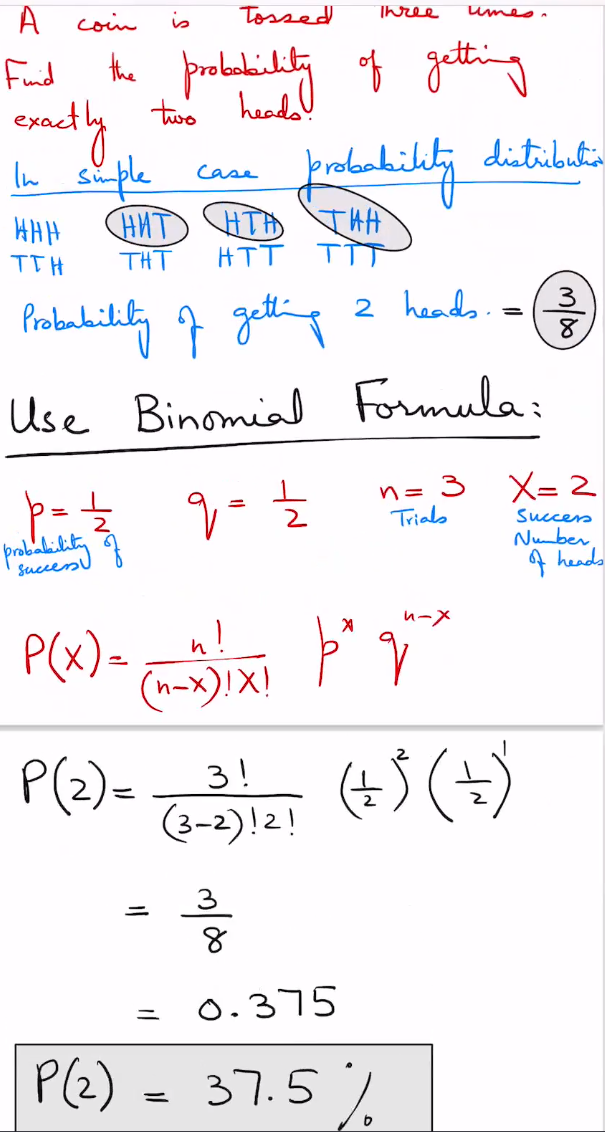 A coin is tossed three times.
Find the probability of getting
exactly two heads?
In simple case probability distribution
HHH HHT HTH THH
TTH THT HTT TTT
Probability of getting 2 heads. = 3/8
Use Binomial Formula:
p = 1/2 q = 1/2 n = 3 X = 2
probability of success Trials Success Number of heads
P(X) = n!/(n-X)!X! p^x q^n-x
P(2) = 3!/(3-2)!2! (1/2)^2 (1/2)^1
= 3/8
= 0.375
P(2) = 37.5 %